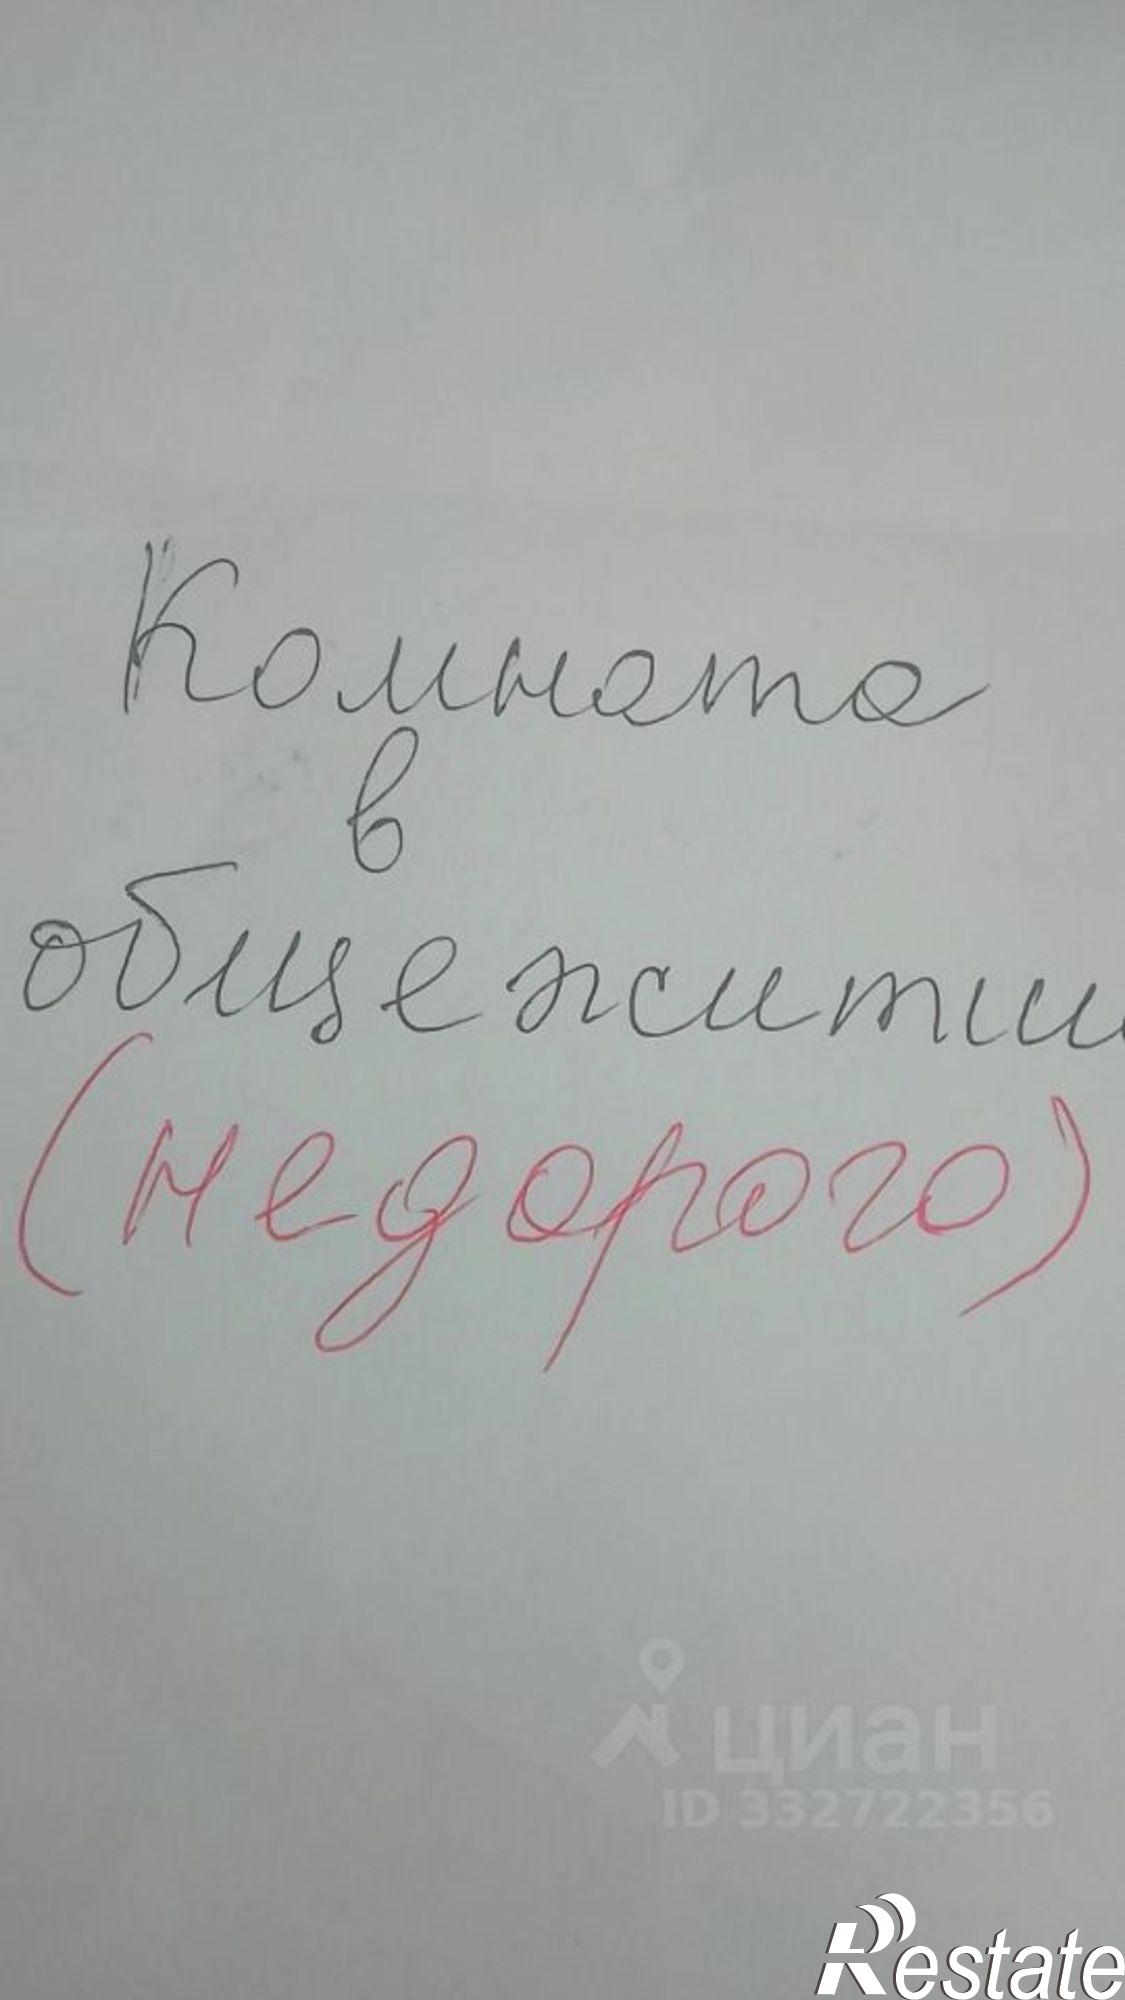 Комната
в
общежитии
(недорого)
циан
ID 332722356
Restate